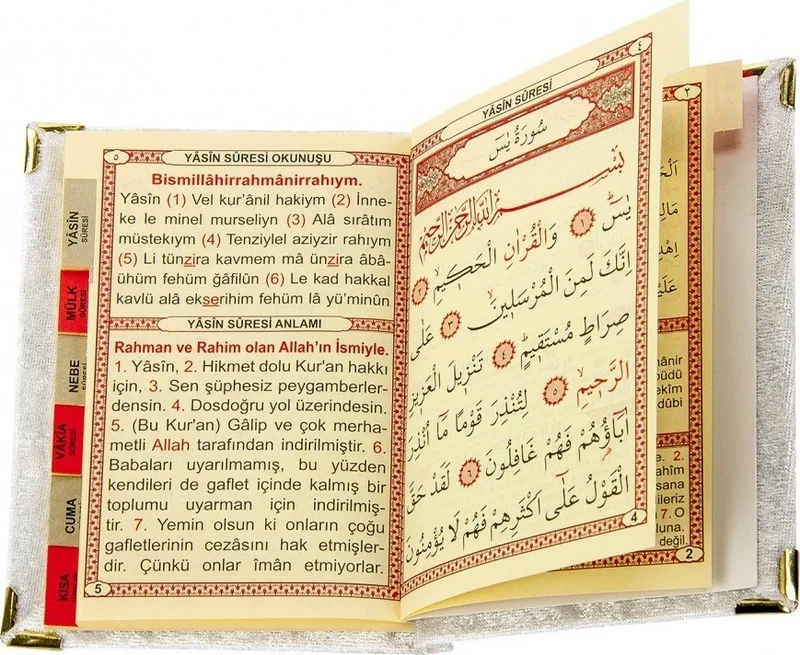 ٥
YÂSÎN SÛRESİ OKUNUŞU
Bismillâhirrahmânirrahıym.
Yâsîn (1) Vel kur'ânil hakiym (2) İnne-
ke le minel murseliyn (3) Alâ sırâtım
müstekıym (4) Tenziylel aziyzir rahıym
(5) Li tünzira kavmem mâ ünzira âbâ-
ühüm fehüm ğafilûn (6) Le kad hakkal
kavlü alâ ekserihim fehüm lâ yü'minûn
YÂSÎN SÛRESİ ANLAMI
Rahman ve Rahim olan Allah'ın İsmiyle.
1. Yâsîn, 2. Hikmet dolu Kur'an hakkı
için, 3. Sen şüphesiz peygamberler-
densin. 4. Dosdoğru yol üzerindesin.
5. (Bu Kur'an) Gâlip ve çok merha-
metli Allah tarafından indirilmiştir. 6.
Babaları uyarılmamış, bu yüzden
kendileri de gaflet içinde kalmış bir
toplumu uyarman için indirilmiş-
tir. 7. Yemin olsun ki onların çoğu
gafletlerinin cezâsını hak etmişler-
dir. Çünkü onlar îmân etmiyorlar.
5
YÂSÎN SÛRESİ
MÜLK SÛRESİ
NEBE
VÂKIA SÛRESİ
CUMA
KISA
٤
YÂSÎN SÛRESİ
سُورَةُ يٰسٓ
بِسْمِ اللّٰهِ الرَّحْمٰنِ الرَّحِيمِ
يٰسٓ ﴿١﴾ وَالْقُرْاٰنِ الْحَكِيمِ ﴿٢﴾
اِنَّكَ لَمِنَ الْمُرْسَلِينَ ﴿٣﴾ عَلٰى
صِرَاطٍ مُسْتَقِيمٍ ﴿٤﴾ تَنْزِيلَ الْعَزِيزِ
الرَّحِيمِ ﴿٥﴾ لِتُنْذِرَ قَوْمًا مَا اُنْذِرَ
اٰبَاؤُهُمْ فَهُمْ غَافِلُونَ ﴿٦﴾ لَقَدْ حَقَّ
الْقَوْلُ عَلٰى اَكْثَرِهِمْ فَهُمْ لَا يُؤْمِنُونَ
4
٢
mânir
büdü
ekîm
dûbi
e. 2.
ahîm
sana
ileriz
7. O
luna.
değil.
2